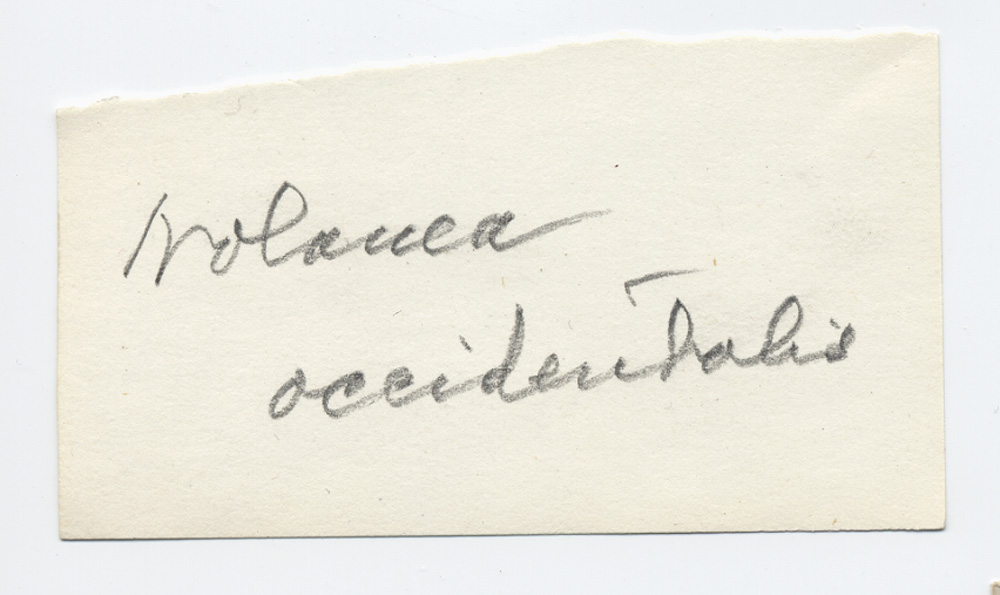 Nolanea
occidentalis